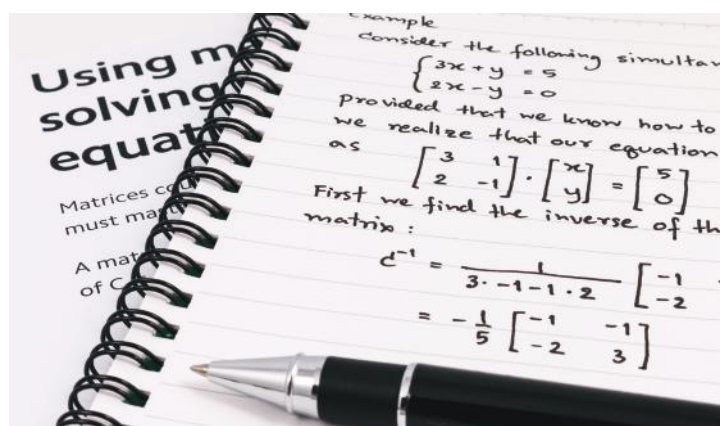 Using m
solving
equat
Matrices cou
must mast
A mat
of C
Example
Consider the following simultan
{ 3x + y = 5
2x - y = 0
provided that we know how to
we realize that our equation
as [ 3 1 2 -1 ] · [ x y ] = [ 5 0 ]
First we find the inverse of th
matrix :
C⁻¹ = 1 / 3 · -1 - 1 · 2 [ -1 -2
= - 1/5 [ -1 -1 -2 3 ]